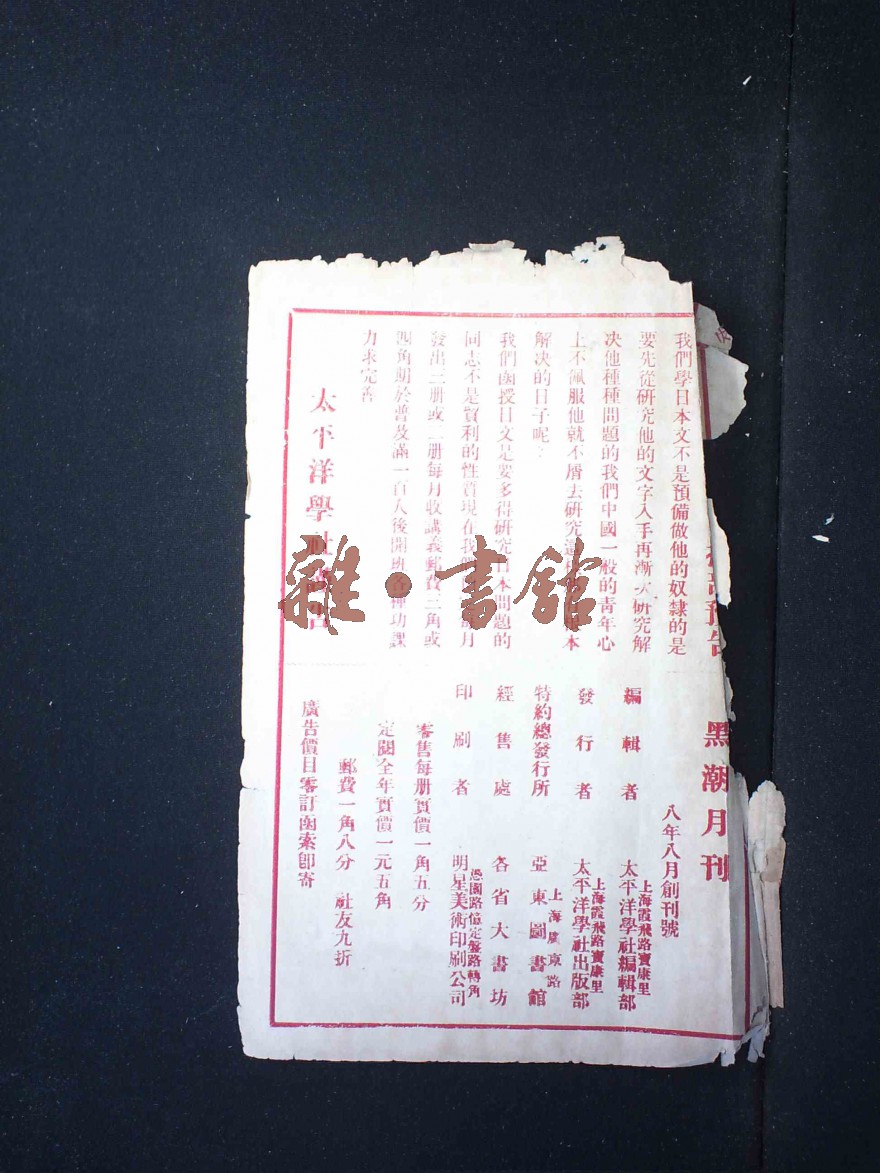 預告
我們學日本文不是預備做他的奴隸的是
要先從研究他的文字入手再漸 研究解
决他種種問題的我們中國一般的青年心
上不佩服他就不屑去研究 本
解决的日子呢？
我們函授日文是要多得研究日本問題的
同志不是貿利的性質現在我 每月
發出三册或二册每月收講義郵費三角或
四角期於普及滿一百人後開班各種功課
力求完善
太平洋學社
黑潮月刊
八年八月創刊號
編輯者 上海霞飛路寶康里 太平洋學社編輯部
發行者 上海霞飛路寶康里 太平洋學社出版部
特約總發行所 上海廣東路 亞東圖書館
經售處 各省大書坊
印刷者 愚園路憶定盤路轉角 明星美術印刷公司
零售每册實價一角五分
定閱全年實價一元五角
郵費一角八分 社友九折
廣告價目零訂函索卽寄
雜·書館